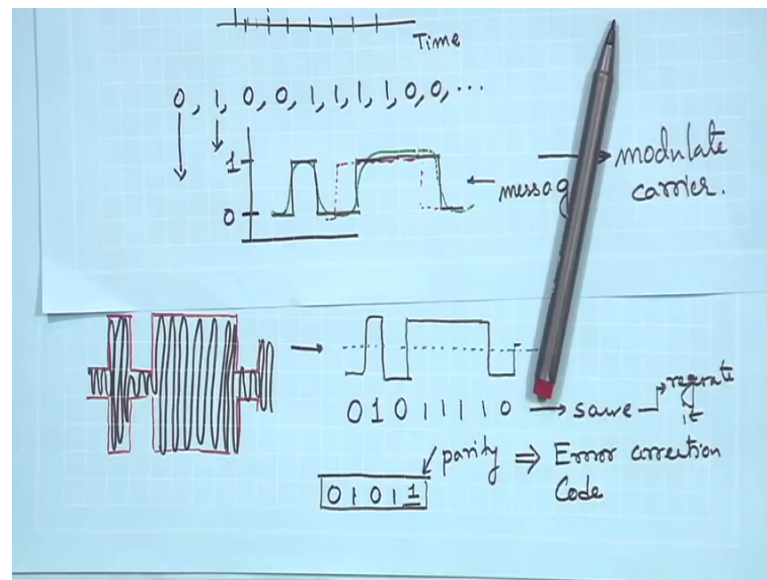 Time
0, 1, 0, 0, 1, 1, 1, 1, 0, 0, ...
1
0
messag
modulate
carrier.
0 1 0 1 1 1 1 0
same
regerate
it
parity ⇒ Error correction
Code
0 1 0 1 1